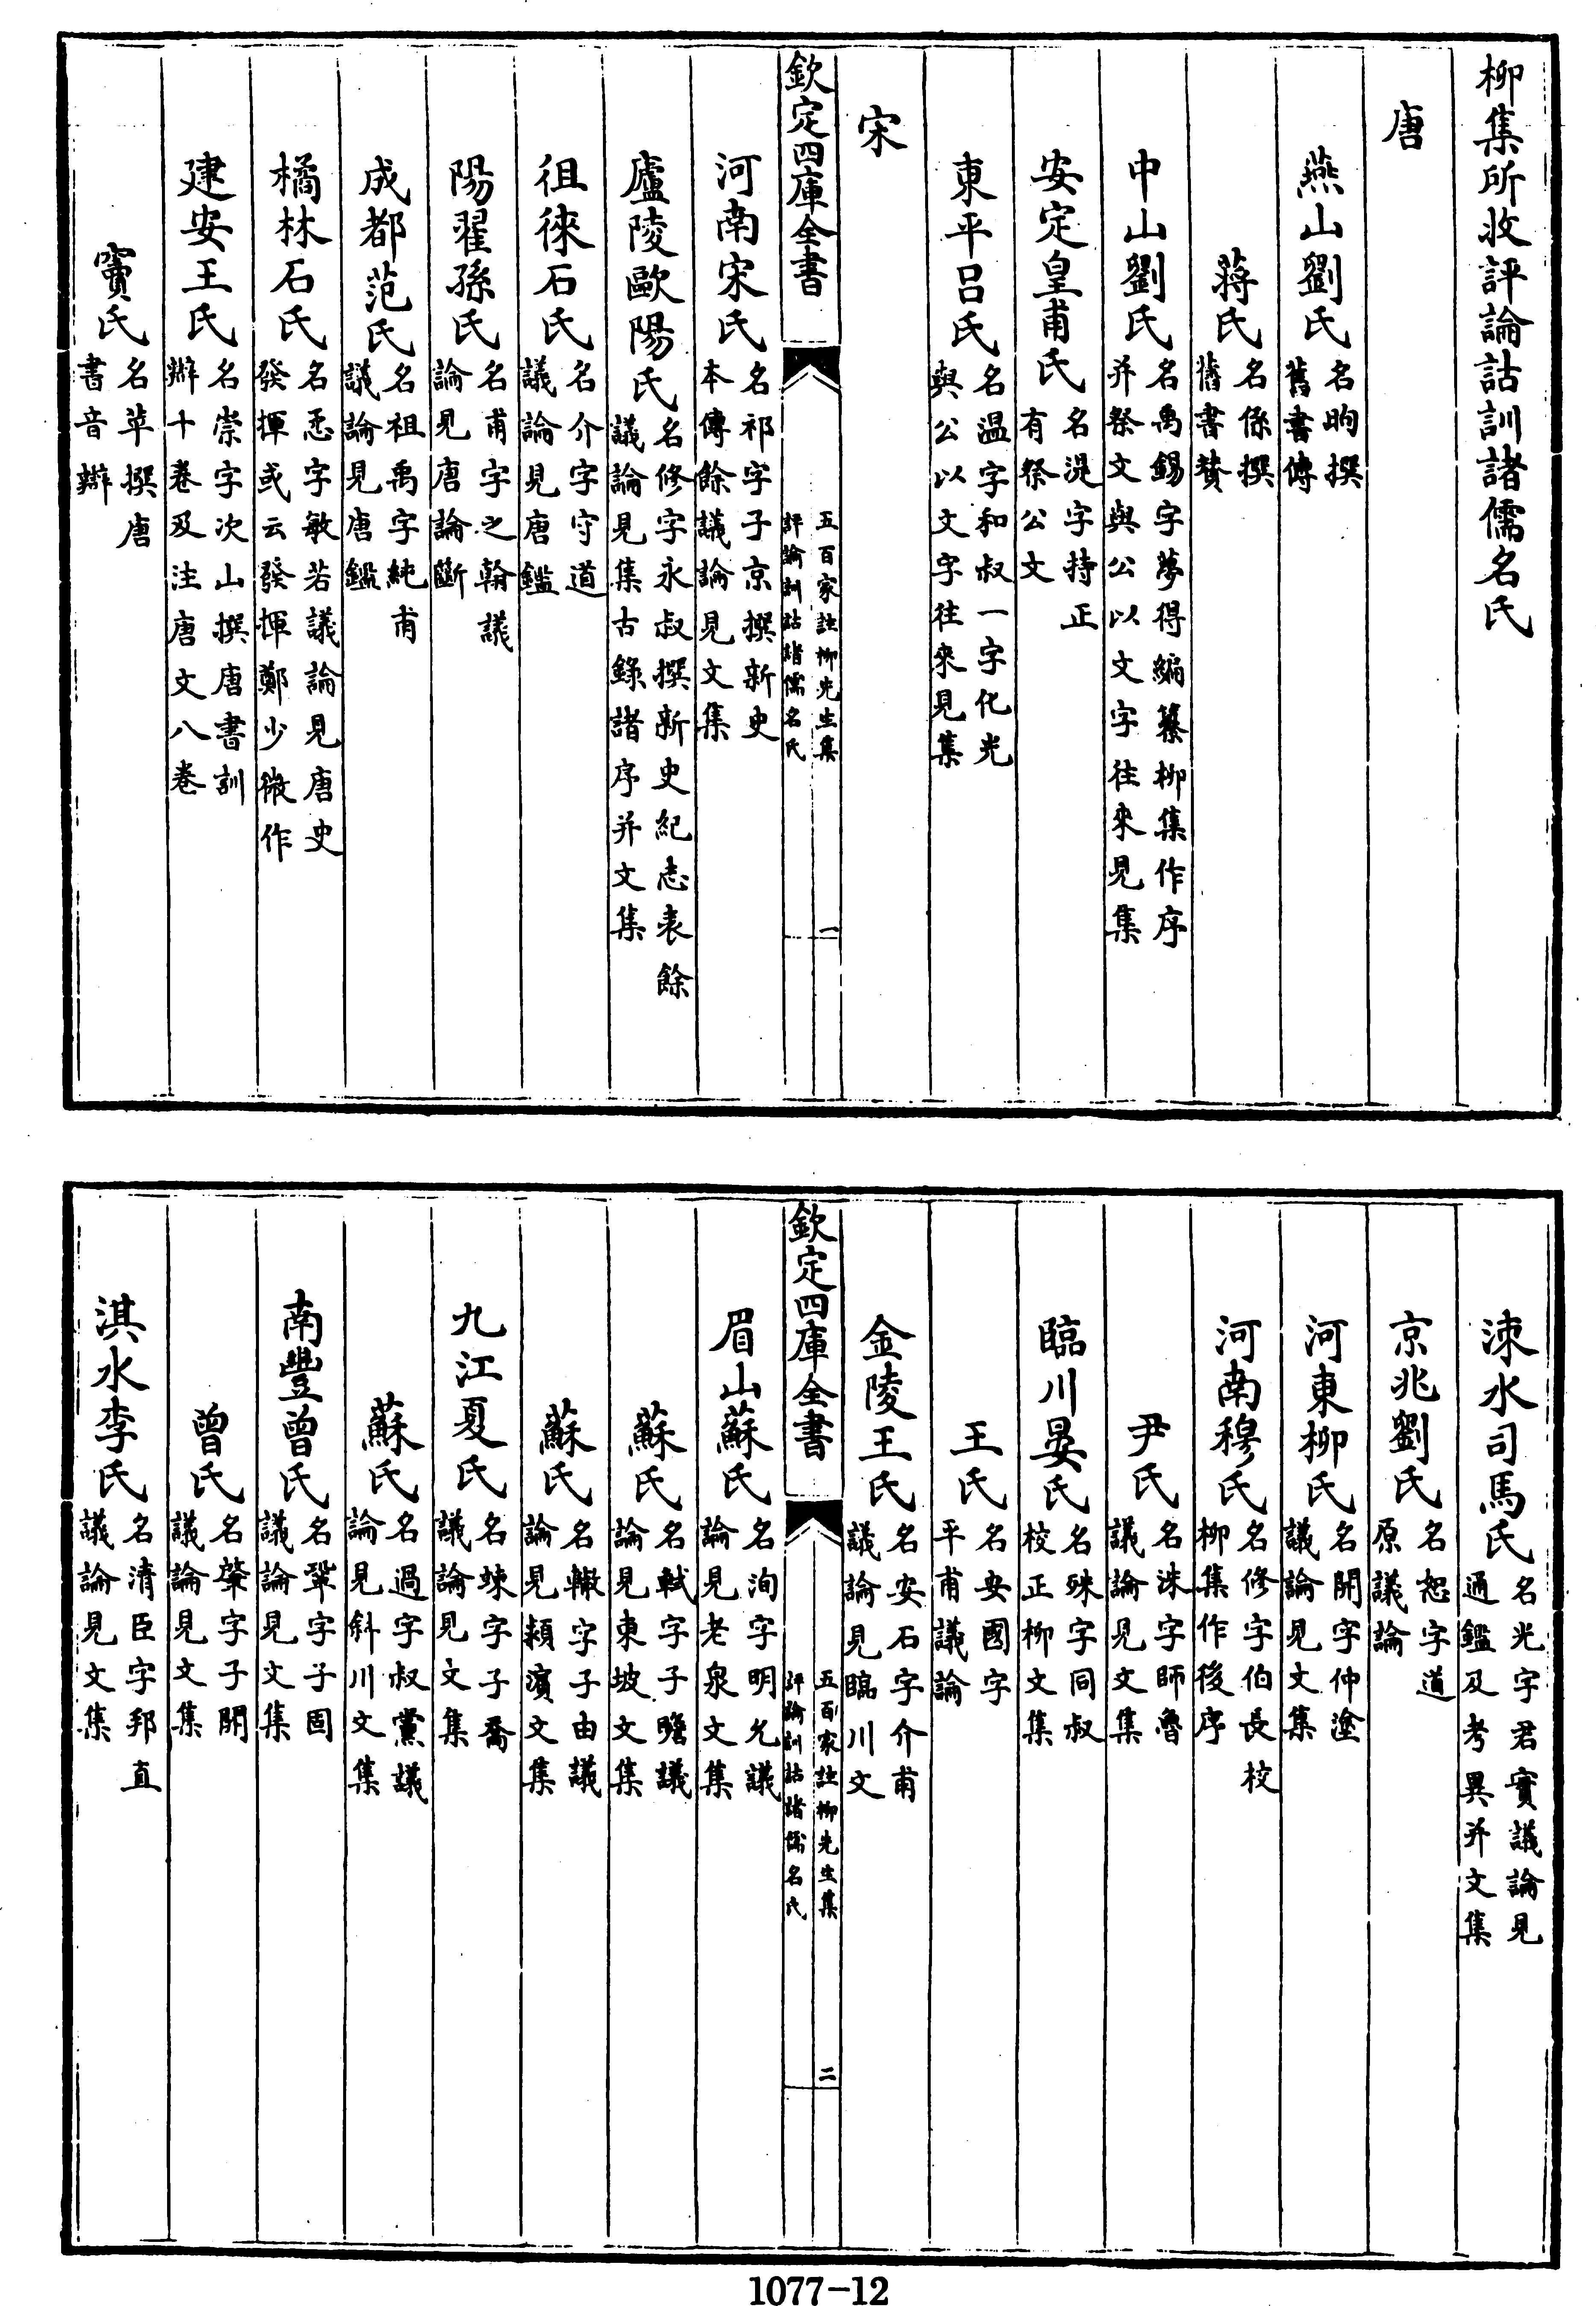 柳集所收評論詁訓諸儒名氏
唐
燕山劉氏 名昫撰
舊書傳
蔣氏 名係撰
舊書賛
中山劉氏 名禹錫字夢得編纂柳集作序
并祭文與公以文字往來見集
安定皇甫氏 名湜字持正
有祭公文
東平吕氏 名温字和叔一字化光
與公以文字往來見集
宋
欽定四庫全書
五百家註柳先生集
評論訓詁諸儒名氏
一
河南宋氏 名祁字子京撰新史
本傳餘議論見文集
廬陵歐陽氏 名修字永叔撰新史紀志表餘
議論見集古錄諸序并文集
徂徠石氏 名介字守道
議論見唐鑑
陽翟孫氏 名甫字之翰議
論見唐論斷
成都范氏 名祖禹字純甫
議論見唐鑑
橘林石氏 名悉字敏若議論見唐史
發揮或云發揮鄭少微作
建安王氏 名崇字次山撰唐書訓
辯十卷及注唐文八卷
竇氏 名苹撰唐
書音辯
涑水司馬氏 名光字君實議論見
通鑑及考異并文集
京兆劉氏 名恕字道
原議論
河東柳氏 名開字仲塗
議論見文集
河南穆氏 名修字伯長校
柳集作後序
尹氏 名洙字師魯
議論見文集
臨川晏氏 名殊字同叔
校正柳文集
王氏 名安國字
平甫議論
金陵王氏 名安石字介甫
議論見臨川文
欽定四庫全書
五百家註柳先生集
評論訓詁諸儒名氏
二
眉山蘇氏 名洵字明允議
論見老泉文集
蘇氏 名軾字子瞻議
論見東坡文集
蘇氏 名轍字子由議
論見潁濱文集
九江夏氏 名竦字子喬
議論見文集
蘇氏 名過字叔黨議
論見斜川文集
南豐曾氏 名鞏字子固
議論見文集
曾氏 名肇字子開
議論見文集
淇水李氏 名清臣字邦直
議論見文集
1077-12